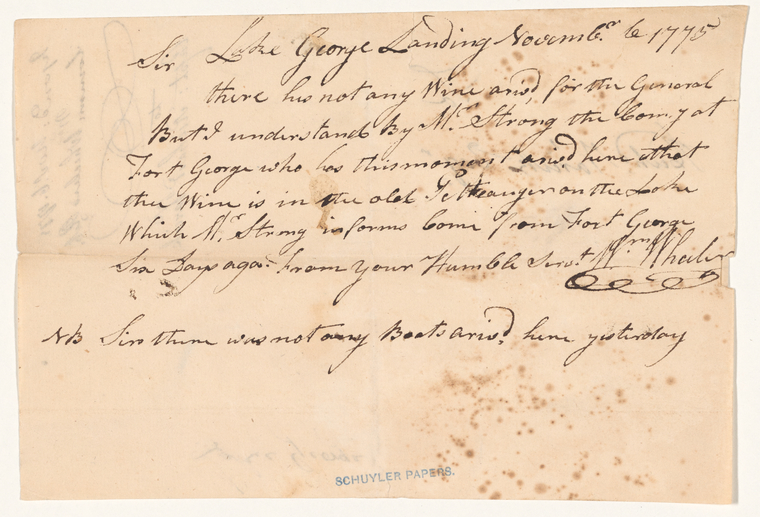 Sir Lake George Landing Novembr. 6 1775
there has not any Wine arisd, for the General
But I understand By Mr. Strong the Com.y at
Fort George who has this moment arisd here that
the Wine is in the old on the Lake
Which Mr. Strong informs Come from Fort George
Six Days ago. From your Humble Servt. Wm Whaler
NB Sir there was not any Boats arisd, here yesterday
SCHUYLER PAPERS.